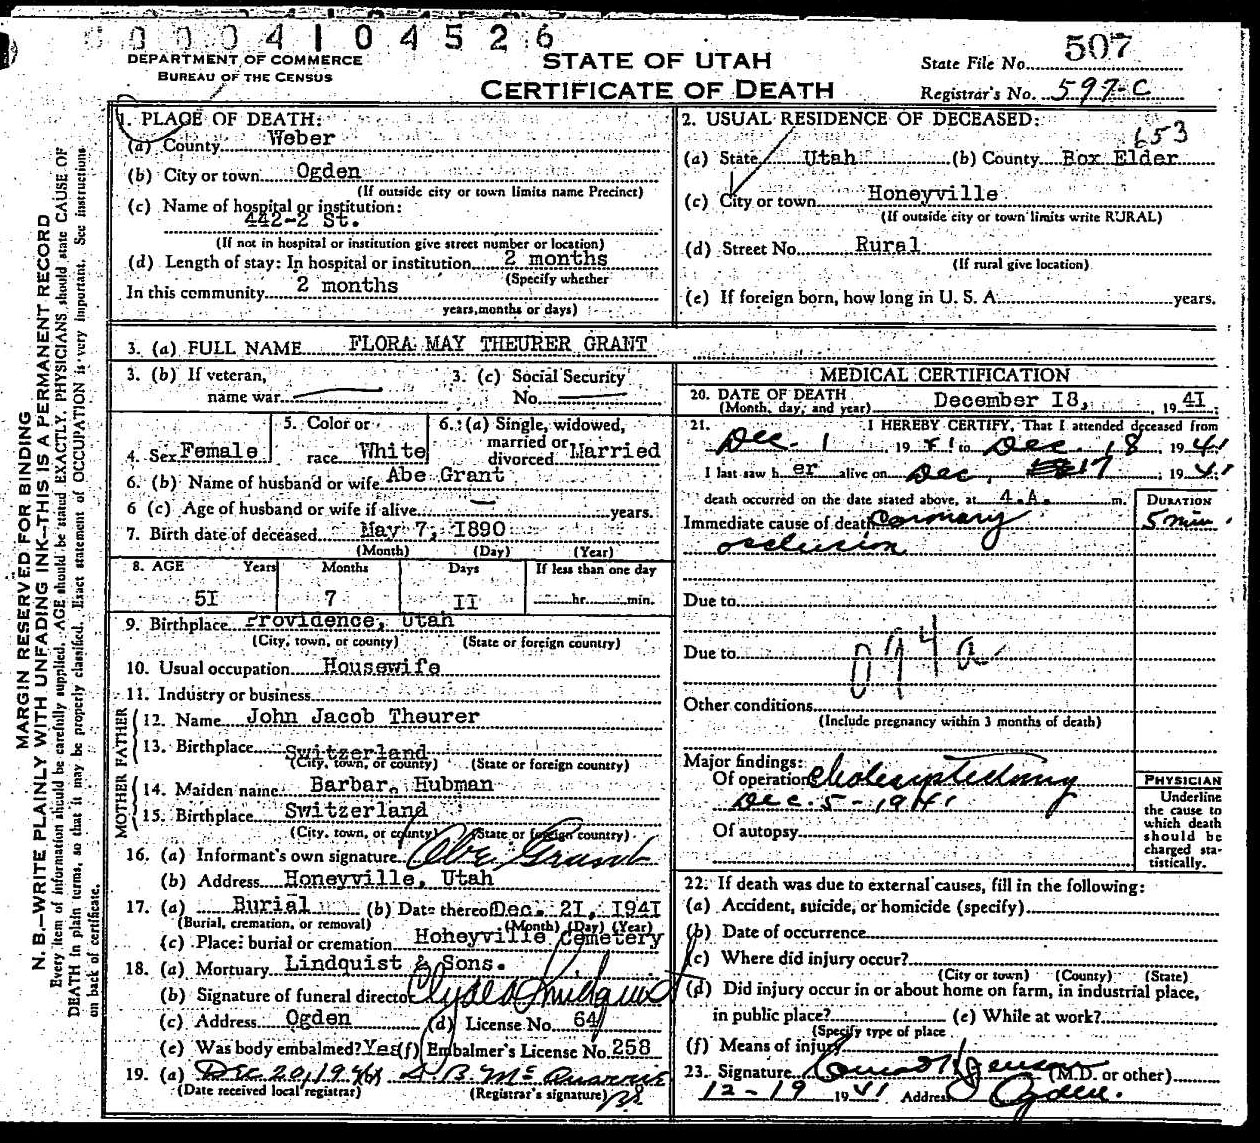 0004104526
DEPARTMENT OF COMMERCE
BUREAU OF THE CENSUS
STATE OF UTAH
CERTIFICATE OF DEATH
State File No. 507
Registrar's No. 597-C
MARGIN RESERVED FOR BINDING
N. B.—WRITE PLAINLY WITH UNFADING INK—THIS IS A PERMANENT RECORD
Every item of information should be carefully supplied. AGE should be stated EXACTLY. PHYSICIANS should state CAUSE OF
DEATH in plain terms, so that it may be properly classified. Exact statement of OCCUPATION is very important. See instructions
on back of certificate.
1. PLACE OF DEATH:
(a) County Weber
(b) City or town Ogden
(If outside city or town limits name Precinct)
(c) Name of hospital or institution:
442-2 St.
(If not in hospital or institution give street number or location)
(d) Length of stay: In hospital or institution 2 months
(Specify whether
In this community 2 months
years, months or days)
2. USUAL RESIDENCE OF DECEASED:
653
(a) State Utah (b) County Box Elder
(c) City or town Honeyville
(If outside city or town limits write RURAL)
(d) Street No. Rural
(If rural give location)
(e) If foreign born, how long in U. S. A. years.
3. (a) FULL NAME FLORA MAY THEURER GRANT
3. (b) If veteran, name war
3. (c) Social Security No.
4. Sex Female
5. Color or race White
6. (a) Single, widowed, married or divorced Married
6. (b) Name of husband or wife Abe Grant
6 (c) Age of husband or wife if alive years.
7. Birth date of deceased May 7, 1890
(Month) (Day) (Year)
8. AGE Years Months Days If less than one day
51 7 11 hr. min.
9. Birthplace Providence, Utah
(City, town, or county) (State or foreign country)
10. Usual occupation Housewife
11. Industry or business
FATHER
12. Name John Jacob Theurer
13. Birthplace Switzerland
(City, town, or county) (State or foreign country)
MOTHER
14. Maiden name Barbar. Hubman
15. Birthplace Switzerland
(City, town, or county) (State or foreign country)
16. (a) Informant's own signature Abe Grant
(b) Address Honeyville, Utah
17. (a) Burial (b) Date thereof Dec. 21, 1941
(Burial, cremation, or removal) (Month) (Day) (Year)
(c) Place: burial or cremation Honeyville Cemetery
18. (a) Mortuary Lindquist & Sons.
(b) Signature of funeral director Clyde Lindquist
(c) Address Ogden (d) License No. 64
(e) Was body embalmed? Yes (f) Embalmer's License No. 258
19. (a) Dec 20, 1941
(Date received local registrar) (Registrar's signature)
MEDICAL CERTIFICATION
20. DATE OF DEATH
(Month, day, and year) December 18, 1941
21. I HEREBY CERTIFY, That I attended deceased from
Dec. 1 1941 to Dec. 18 1941
I last saw her alive on Dec. 17 1941
death occurred on the date stated above, at 4.A. m.
DURATION
Immediate cause of death Coronary 5 min.
occlusion
Due to
Due to
094a
Other conditions
(Include pregnancy within 3 months of death)
Major findings:
Of operation
Dec. 5-1941
Of autopsy
PHYSICIAN
Underline
the cause to
which death
should be
charged sta-
tistically.
22. If death was due to external causes, fill in the following:
(a) Accident, suicide, or homicide (specify)
(b) Date of occurrence
(c) Where did injury occur?
(City or town) (County) (State)
(d) Did injury occur in or about home on farm, in industrial place,
in public place? (e) While at work?
(Specify type of place
(f) Means of injury
23. Signature Jenson (M.D. or other)
12-19 1941 Address Ogden.